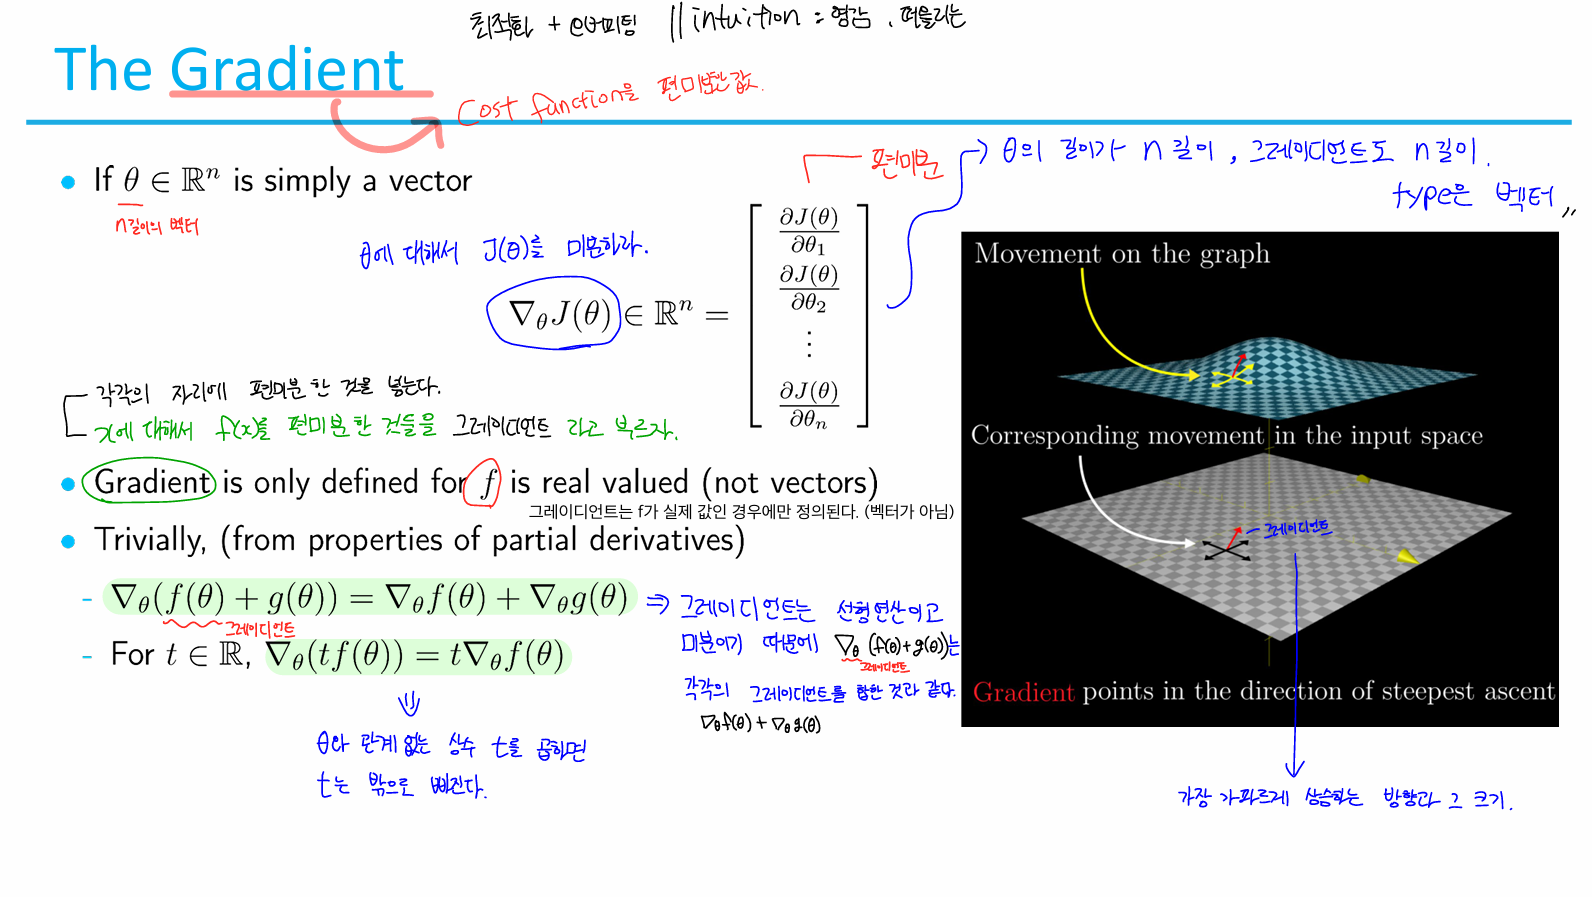 최적화 + e러피팅 || intuition : 영감, 떠올리는
The Gradient
Cost function을 편미분한 값.
편미분
θ의 길이가 n 길이, 그레이디언트도 n길이.
type은 벡터 〃
• If θ ∈ ℝⁿ is simply a vector
n길이의 벡터
θ에 대해서 J(θ)를 미분하라.
∇θJ(θ) ∈ ℝⁿ = [ ∂J(θ)/∂θ₁
∂J(θ)/∂θ₂
⋮
∂J(θ)/∂θₙ ]
각각의 자리에 편미분 한 것을 넣는다.
x에 대해서 f(x)를 편미분 한 것들을 그레이디언트 라고 부르자.
• Gradient is only defined for f is real valued (not vectors)
그레이디언트는 f가 실제 값인 경우에만 정의된다. (벡터가 아님)
• Trivially, (from properties of partial derivatives)
- ∇θ(f(θ) + g(θ)) = ∇θf(θ) + ∇θg(θ)
그레이디언트
- For t ∈ ℝ, ∇θ(tf(θ)) = t∇θf(θ)
θ와 관계 없는 상수 t를 곱하면
t는 밖으로 빠진다.
⇒ 그레이디언트는 선형연산이고
미분이기 때문에 ∇θ (f(θ)+g(θ))는
그레이디언트
각각의 그레이디언트를 합한 것과 같다.
∇θf(θ) + ∇θg(θ)
Movement on the graph
Corresponding movement in the input space
그레이디언트
Gradient points in the direction of steepest ascent
가장 가파르게 상승하는 방향과 그 크기.